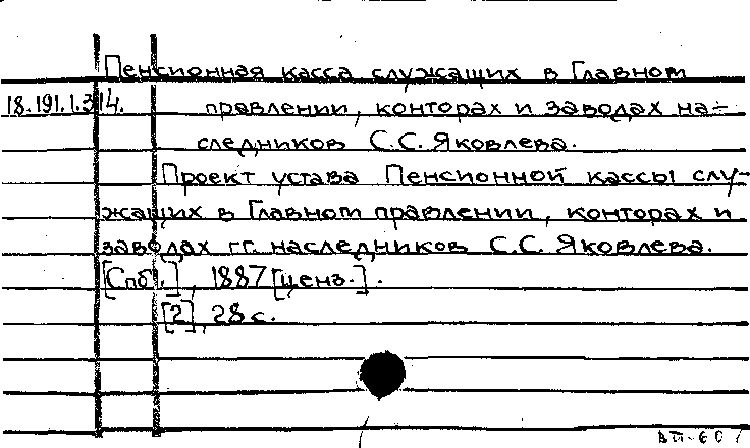 Пенсионная касса служащих в Главном
18.191.1.314. правлении, конторах и заводах на-
следников С.С. Яковлева.
Проект устава Пенсионной кассы слу-
жащих в Главном правлении, конторах и
заводах гг. наследников С.С. Яковлева.
[Спб.], 1887 [ценз.].
[2], 28 с.